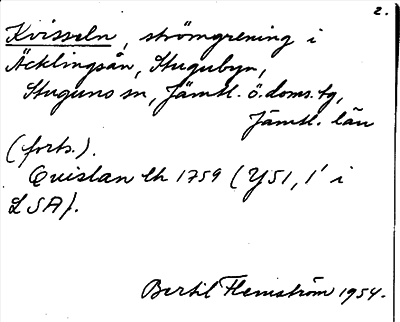 2.
Kvisseln, strömgrening i
Äcklingsån, Stugubyn,
Stuguns sn, Jämtl. ö. doms. tg,
Jämtl. län
(forts.).
Quislan lh 1759 (Y51, 1' i
LSA).
Bertil Flemström 1954.